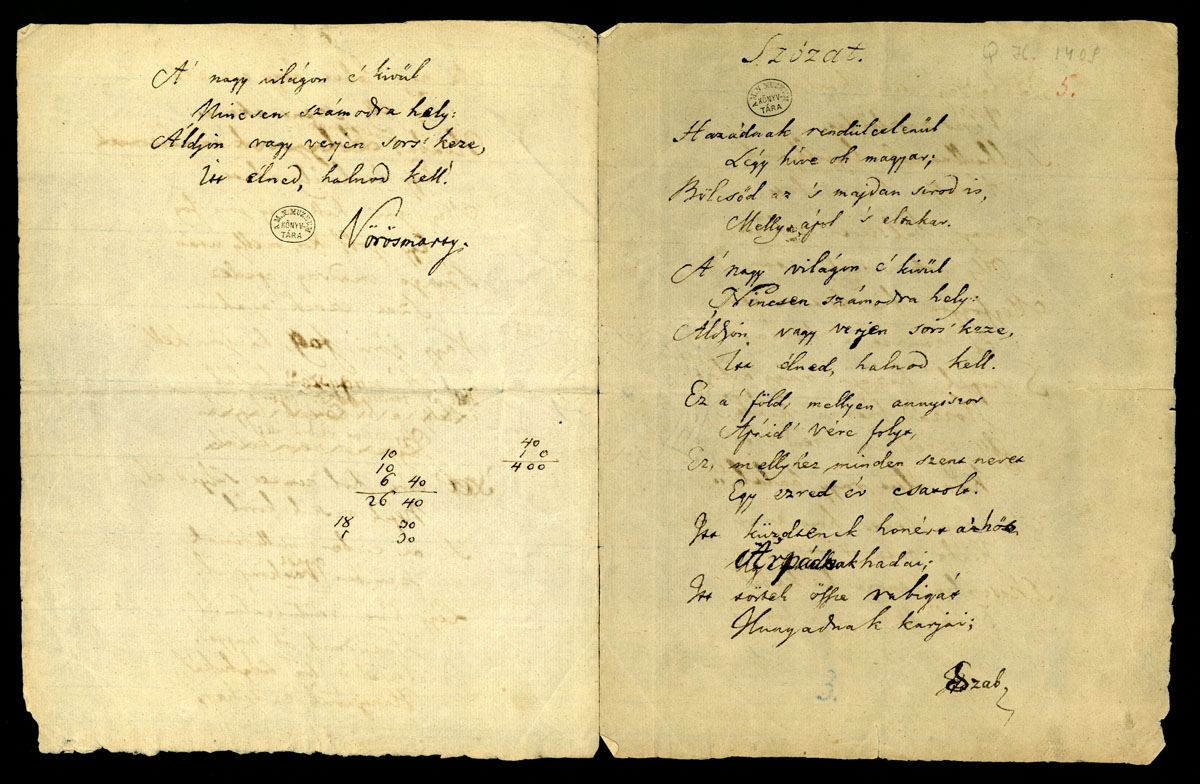 A' nagy világon é kivűl
Nincsen számodra hely:
Áldjon vagy verjen sors' keze,
Itt élned, halnod kell.
A. M. N. MUZEUM
KÖNYV-
TÁRA
Vörösmarty.
10
10
6 40
26 40
18 30
30
40
10
400
Szózat.
1408
5.
A. M. N. MUZEUM
KÖNYV-
TÁRA
Hazádnak rendületlenűl
Légy híve oh magyar;
Bölcsőd az 's majdan sírod is,
Melly ápol 's eltakar.
A' nagy világon é kivűl
Nincsen számodra hely:
Áldjon vagy verjen sors' keze,
Itt élned, halnod kell.
Ez a' föld, mellyen annyiszor
Apáid' vére folyt,
Ez, mellyhez minden szent nevet
Egy ezred év csatolt.
Itt küzdtenek honért a' hős
Árpádnak hadai;
Itt törtek össze rabigát
Hunyadnak karjai;
Szab